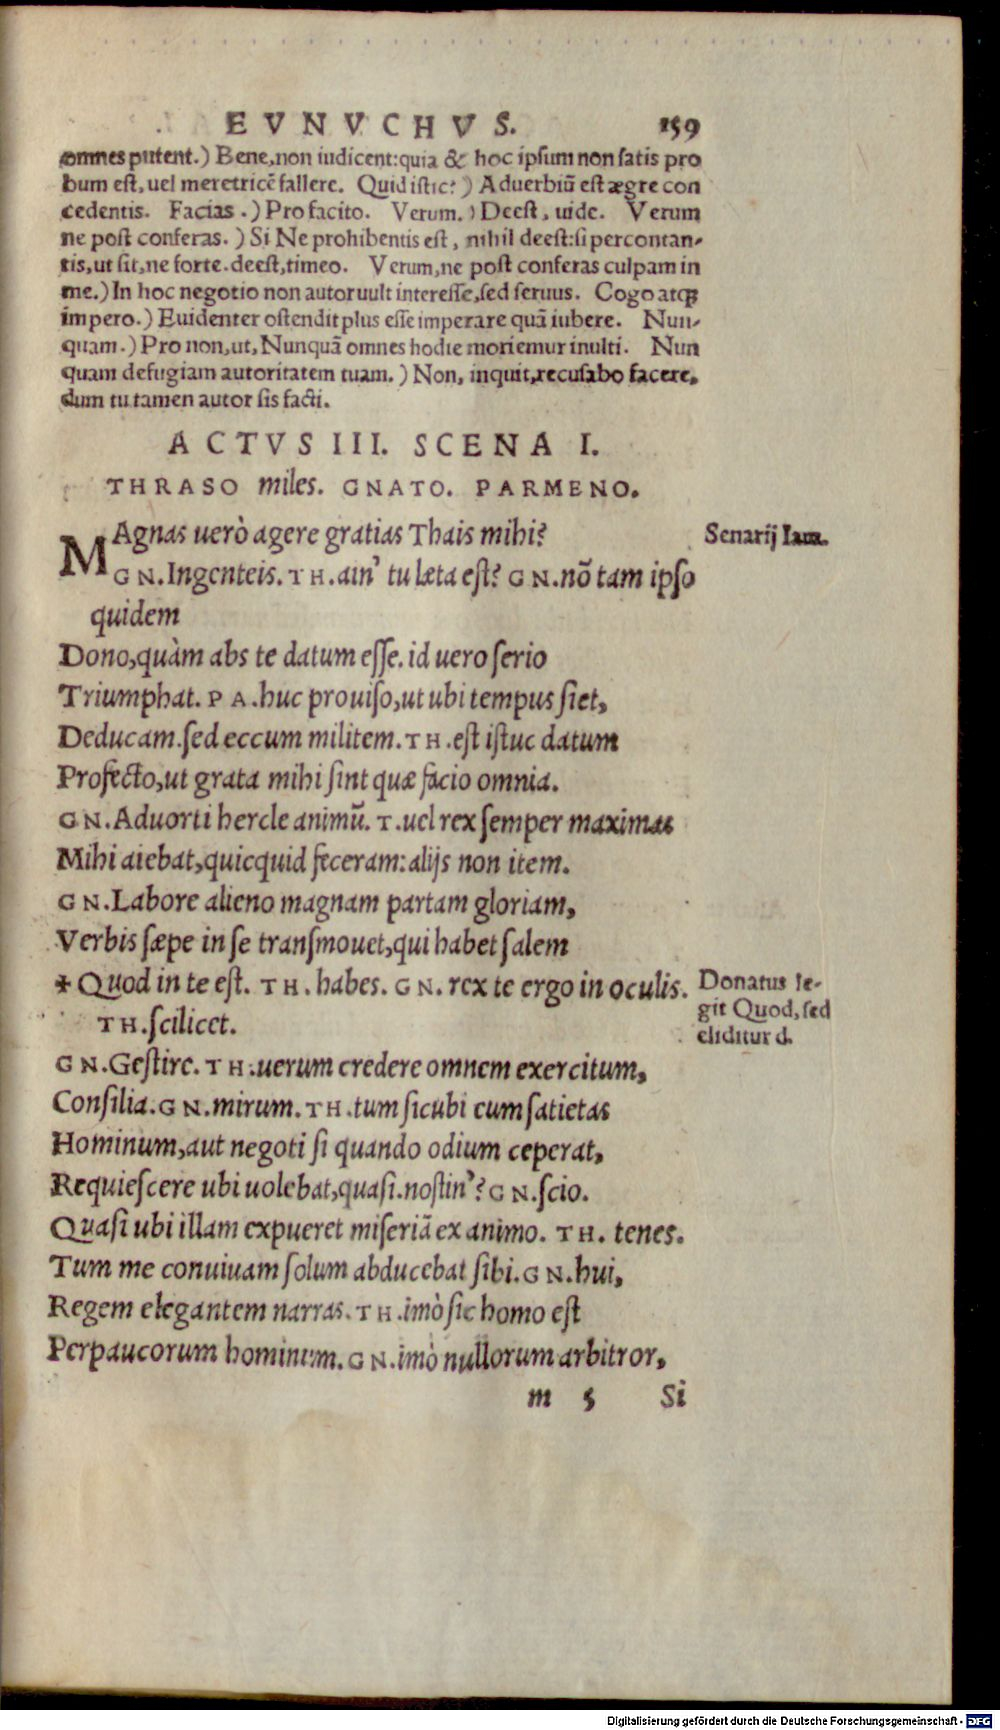 EVNVCHVS. 159
omnes putent.) Bene, non iudicent: quia & hoc ipsum non satis pro
bum est, uel meretricẽ fallere. Quid istic?) Aduerbiũ est ægre con
cedentis. Facias.) Pro facito. Verum.) Deest, uide. Verum
ne post conferas.) Si Ne prohibentis est, nihil deest: si percontan-
tis, ut sit, ne forte. deest, timeo. Verum, ne post conferas culpam in
me.) In hoc negotio non autor uult interesse, sed seruus. Cogo atqꝫ
impero.) Euidenter ostendit plus esse imperare quã iubere. Nun-
quam.) Pro non, ut, Nunquã omnes hodie moriemur inulti. Nun
quam defugiam autoritatem tuam.) Non, inquit, recusabo facere,
dum tu tamen autor sis facti.
ACTVS III. SCENA I.
THRASO miles. GNATO. PARMENO.
MAgnas uerò agere gratias Thais mihi? Senarij Iam.
GN. Ingenteis. TH. ain' tu læta est? GN. nõ tam ipso
quidem
Dono, quàm abs te datum esse. id uero serio
Triumphat. PA. huc prouiso, ut ubi tempus siet,
Deducam. sed eccum militem. TH. est istuc datum
Profecto, ut grata mihi sint quæ facio omnia.
GN. Aduorti hercle animũ. T. uel rex semper maximas
Mihi aiebat, quicquid feceram: alijs non item.
GN. Labore alieno magnam partam gloriam,
Verbis sæpe in se transmouet, qui habet salem
* Quod in te est. TH. habes. GN. rex te ergo in oculis.
TH. scilicet.
Donatus le-
git Quod, sed
eliditur d.
GN. Gestire. TH. uerum credere omnem exercitum,
Consilia. GN. mirum. TH. tum sicubi cum satietas
Hominum, aut negoti si quando odium ceperat,
Requiescere ubi uolebat, quasi. nostin'? GN. scio.
Quasi ubi illam expueret miseriã ex animo. TH. tenes.
Tum me conuiuam solum abducebat sibi. GN. hui,
Regem elegantem narras. TH. imò sic homo est
Perpaucorum hominum. GN. imò nullorum arbitror,
m 5 Si
Digitalisierung gefördert durch die Deutsche Forschungsgemeinschaft - DFG